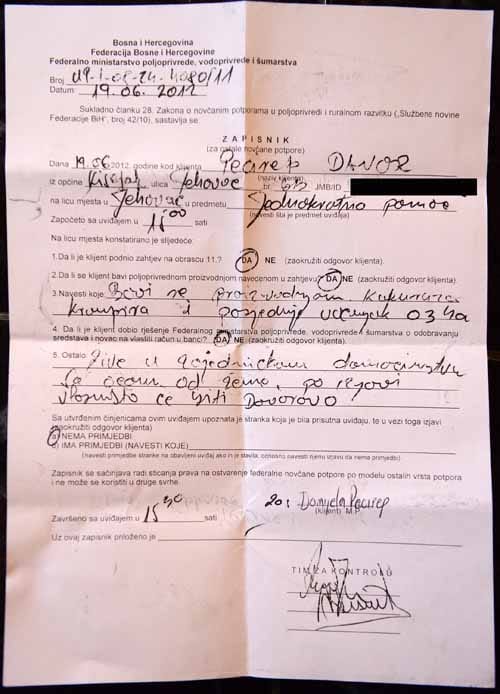 Bosna i Hercegovina
Federacija Bosne i Hercegovine
Federalno ministarstvo poljoprivrede, vodoprivrede i šumarstva
Broj 09-1-08-24-4080/11
Datum: 19.06.2012
Sukladno članku 28. Zakona o novčanim potporama u poljoprivredi i ruralnom razvitku („Službene novine
Federacije BiH", broj 42/10), sastavlja se
ZAPISNIK
(za ostale novčane potpore)
Dana 19.06.2012. godine kod klijenta Pecirep DAVOR
(naziv klijenta)
iz općine Kiseljak ulica Jehovac br. JMB/ID
na licu mjesta u Jehovac u predmetu Jednokratna pomoć
(navesti šta je predmet uviđaja)
Započeto sa uviđajem u 15 00 sati
Na licu mjesta konstatirano je slijedeće:
1.Da li je klijent podnio zahtjev na obrascu 11.? DA NE (zaokružiti odgovor klijenta).
2.Da li se klijent bavi poljoprivrednom proizvodnjom navecenom u zahtjevu? DA NE (zaokružiti odgovor klijenta).
3.Navesti koje: Bavi se proizvodnjom kukuruza
krompira i posjeduje voćnjak 03 ha
4. Da li je klijent dobio rješenje Federalnog ministarstva poljoprivrede, vodoprivrede i šumarstva o odobravanju
sredstava i novac na vlastiti račun u banci? DA NE (zaokružiti odgovor klijenta).
5. Ostalo: Žive u zajedničkom domaćinstvu
sa ocem od žene, po izjavi
vlasništo će biti Davorovo
Sa utvrđenim činjenicama ovim uviđajem upoznata je stranka koja je bila prisutna uviđaju, te u vezi toga izjavi
(zaokružiti odgovor klijenta)
a) NEMA PRIMJEDBI
b) IMA PRIMJEDBI (NAVESTI KOJE)
(navesti primjedbe stranke na obavljeni uviđaj ako ih je stavila, odnosno navesti njenu izjavu da nema primjedbi)
Zapisnik se sačinjava radi sticanja prava na ostvarenje federalne novčane potpore po modelu ostalih vrsta potpora
i ne može se koristiti u druge svrhe.
Završeno sa uviđajem u 15 30 sati
Danijela Pecirep
(klijent) M.P.
Uz ovaj zapisnik priloženo je
TIM ZA KONTROLU